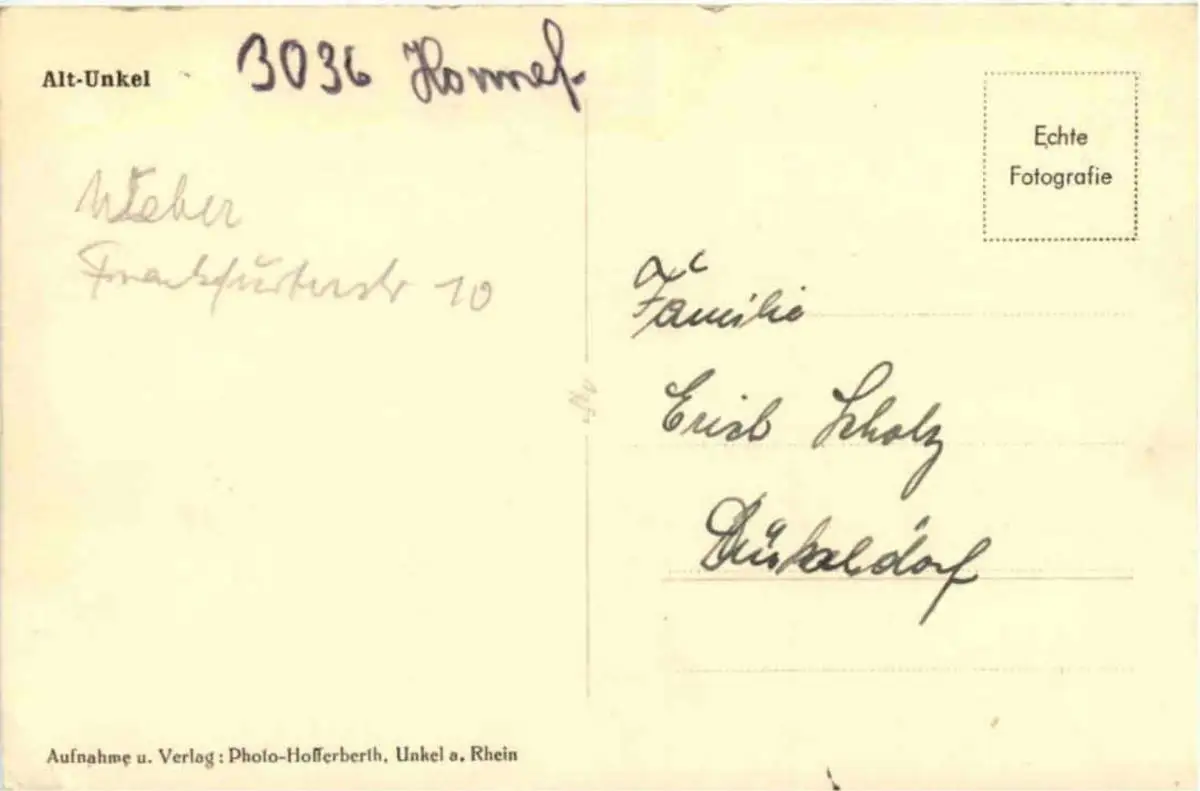 Alt-Unkel
3036 Honnef.
Weber
Frankfurterstr 10
Echte
Fotografie
Familie
Erich Scholz
Düsseldorf
Aufnahme u. Verlag: Photo-Hofferberth, Unkel a. Rhein